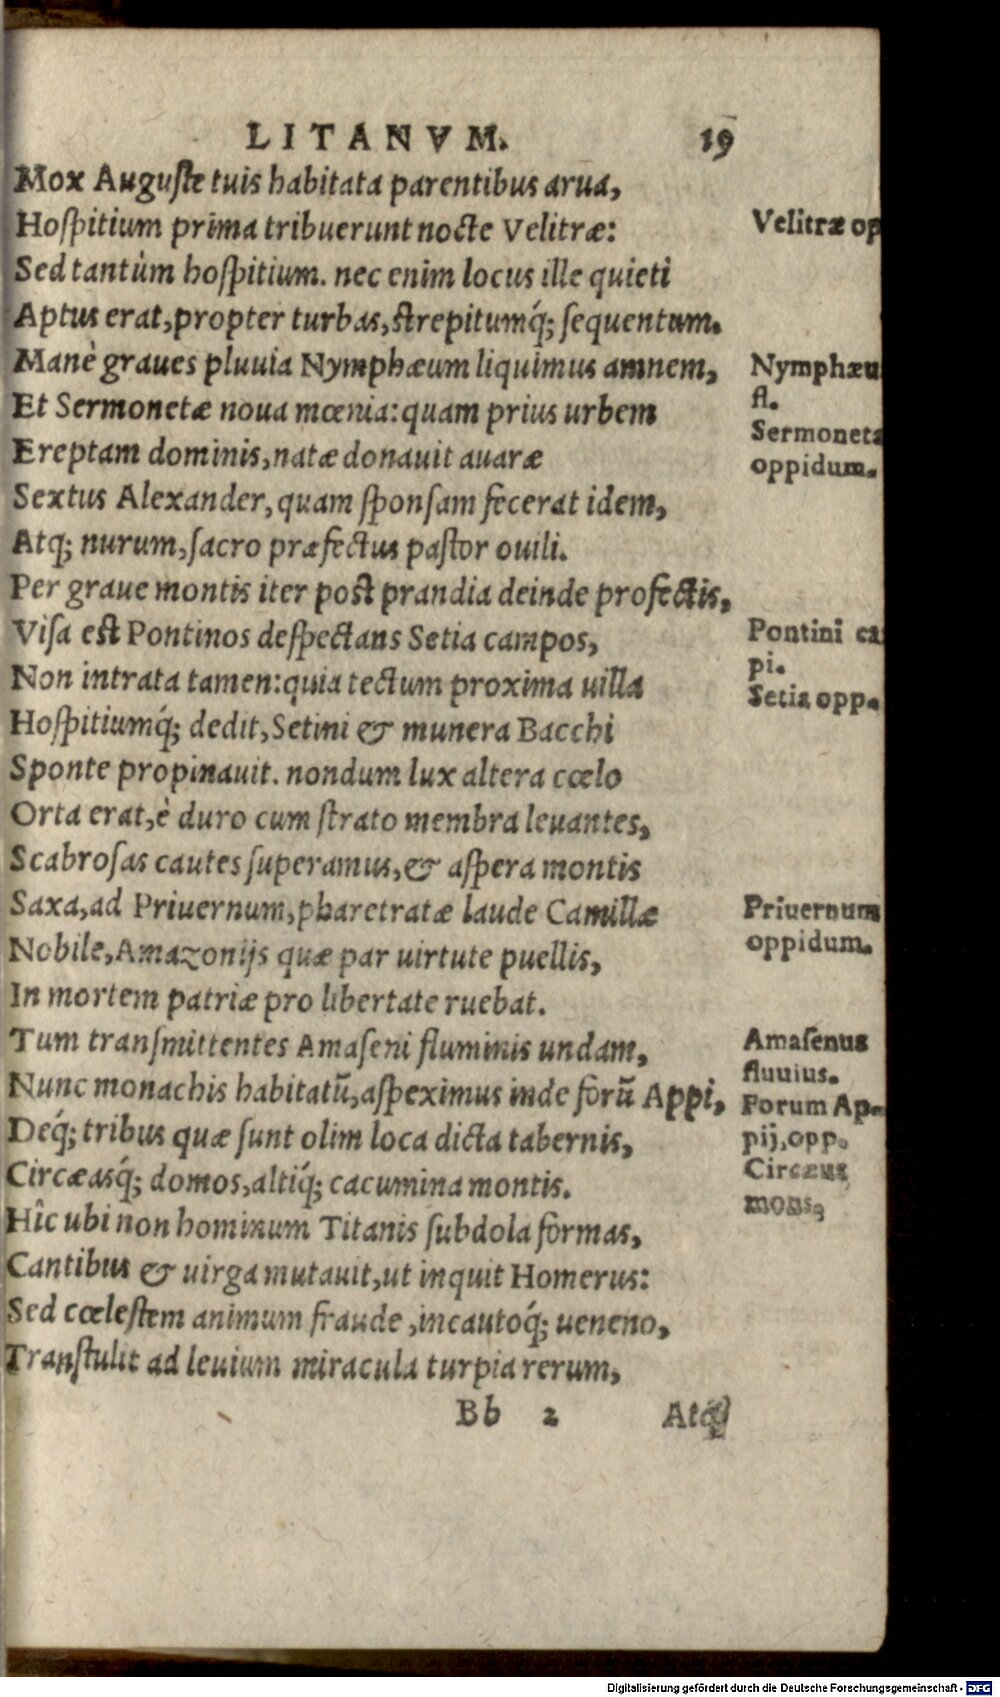 LITANVM. 19
Mox Auguſte tuis habitata parentibus arua,
Hoſpitium prima tribuerunt nocte Velitræ:
Velitræ op
Sed tantùm hoſpitium. nec enim locus ille quieti
Aptus erat, propter turbas, ſtrepitumq́; ſequentum.
Manè graues pluuia Nymphæum liquimus amnem,
Nymphæu
fl.
Et Sermonetæ noua mœnia: quam prius urbem
Sermoneta
Ereptam dominis, natæ donauit auaræ
oppidum.
Sextus Alexander, quam ſponſam fecerat idem,
Atq; nurum, ſacro præfectus paſtor ouili.
Per graue montis iter poſt prandia deinde profectis,
Viſa eſt Pontinos deſpectans Setia campos,
Pontini ca
pi.
Non intrata tamen: quia tectum proxima uilla
Setia opp.
Hoſpitiumq́; dedit, Setini & munera Bacchi
Sponte propinauit. nondum lux altera cœlo
Orta erat, è duro cum ſtrato membra leuantes,
Scabroſas cautes ſuperamus, & aſpera montis
Saxa, ad Priuernum, pharetratæ laude Camillæ
Priuernum
oppidum.
Nobile, Amazonijs quæ par uirtute puellis,
In mortem patriæ pro libertate ruebat.
Tum tranſmittentes Amaſeni fluminis undam,
Amaſenus
fluuius.
Nunc monachis habitatũ, aſpeximus inde forũ Appi,
Forum Ap-
pij, opp.
Deq́; tribus quæ ſunt olim loca dicta tabernis,
Circæasq́; domos, altiq́; cacumina montis.
Circæus
mons,
Hîc ubi non hominum Titanis ſubdola formas,
Cantibus & uirga mutauit, ut inquit Homerus:
Sed cœleſtem animum fraude, incautoq́; ueneno,
Tranſtulit ad leuium miracula turpia rerum,
Bb 2 Atq́;
Digitalisierung gefördert durch die Deutsche Forschungsgemeinschaft - DFG